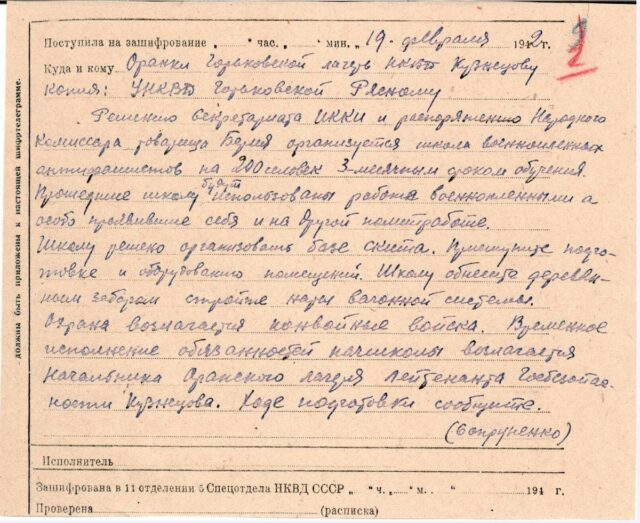 должны быть приложены к настоящей шифртелеграмме.
Поступила на зашифрование „ “ час. „ “ мин. „ 19. февраля 1942 г.
Куда и кому Оранки Горьковской лагерь НКВД Кузнецову
копия: УНКВД Горьковской Рясному
Решению Секретариата ИККИ и распоряжению Народного
Комиссара товарища Берия организуется школа военнопленных
антифашистов на 200 человек 3-месячным сроком обучения.
Прошедшие школу будут использованы работе военнопленными а
особо проявившие себя и на другой политработе.
Школу решено организовать базе скита. Приступите подго-
товке и оборудованию помещений. Школу обнесите деревян-
ным забором стройте нары вагонной системы.
Охрана возлагается конвойные войска. Временное
исполнение обязанностей начшколы возлагается
Начальника Оранского лагеря Лейтенанта Госбезопас-
ности Кузнецова. Ходе подготовки сообщите.
(Сопруненко)
Исполнитель
Зашифрована в 11 отделении 5 Спецотдела НКВД СССР „ “ ч. „ “ м. „ “ 194 г.
Проверена (расписка)